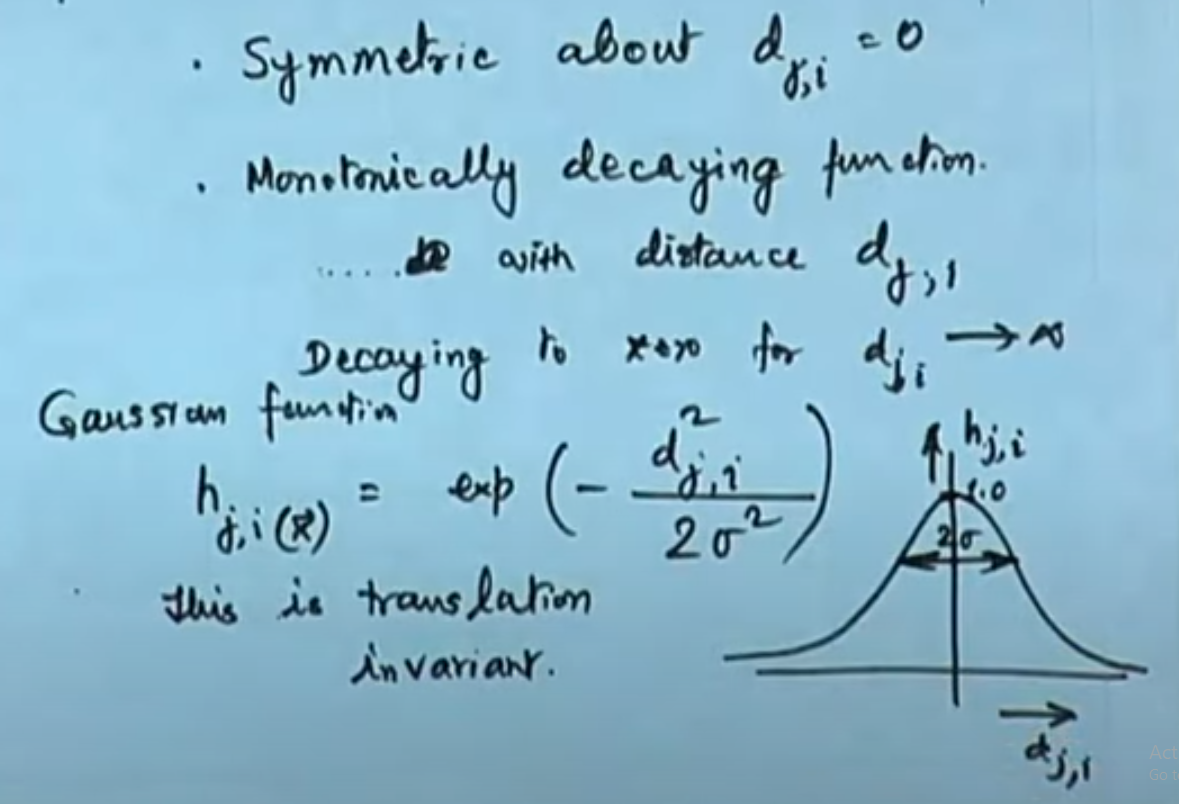 . Symmetric about d_{j,i} = 0
. Monotonically decaying function.
..... with distance d_{j,i}
Decaying to zero for d_{j,i} → ∞
Gaussian function
h_{j,i(x)} = exp ( - d²_{j,i} / 2σ² )
This is translation
invariant.
h_{j,i}
1.0
2σ
d_{j,i}
Act
Go to